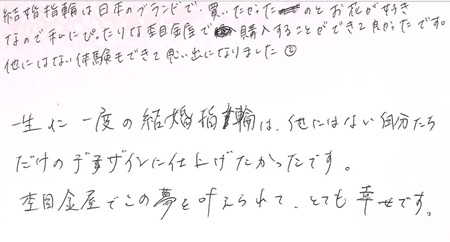 結婚指輪は日本のブランドで、買いたかったのとお花が好き
なので私にぴったりな杢目金屋で購入することができて良かったです。
他にはない体験もできて思い出になりました
一生に一度の結婚指輪は、他にはない自分たち
だけのデザインに仕上げたかったです。
杢目金屋でこの夢を叶えられて、とても幸せです。